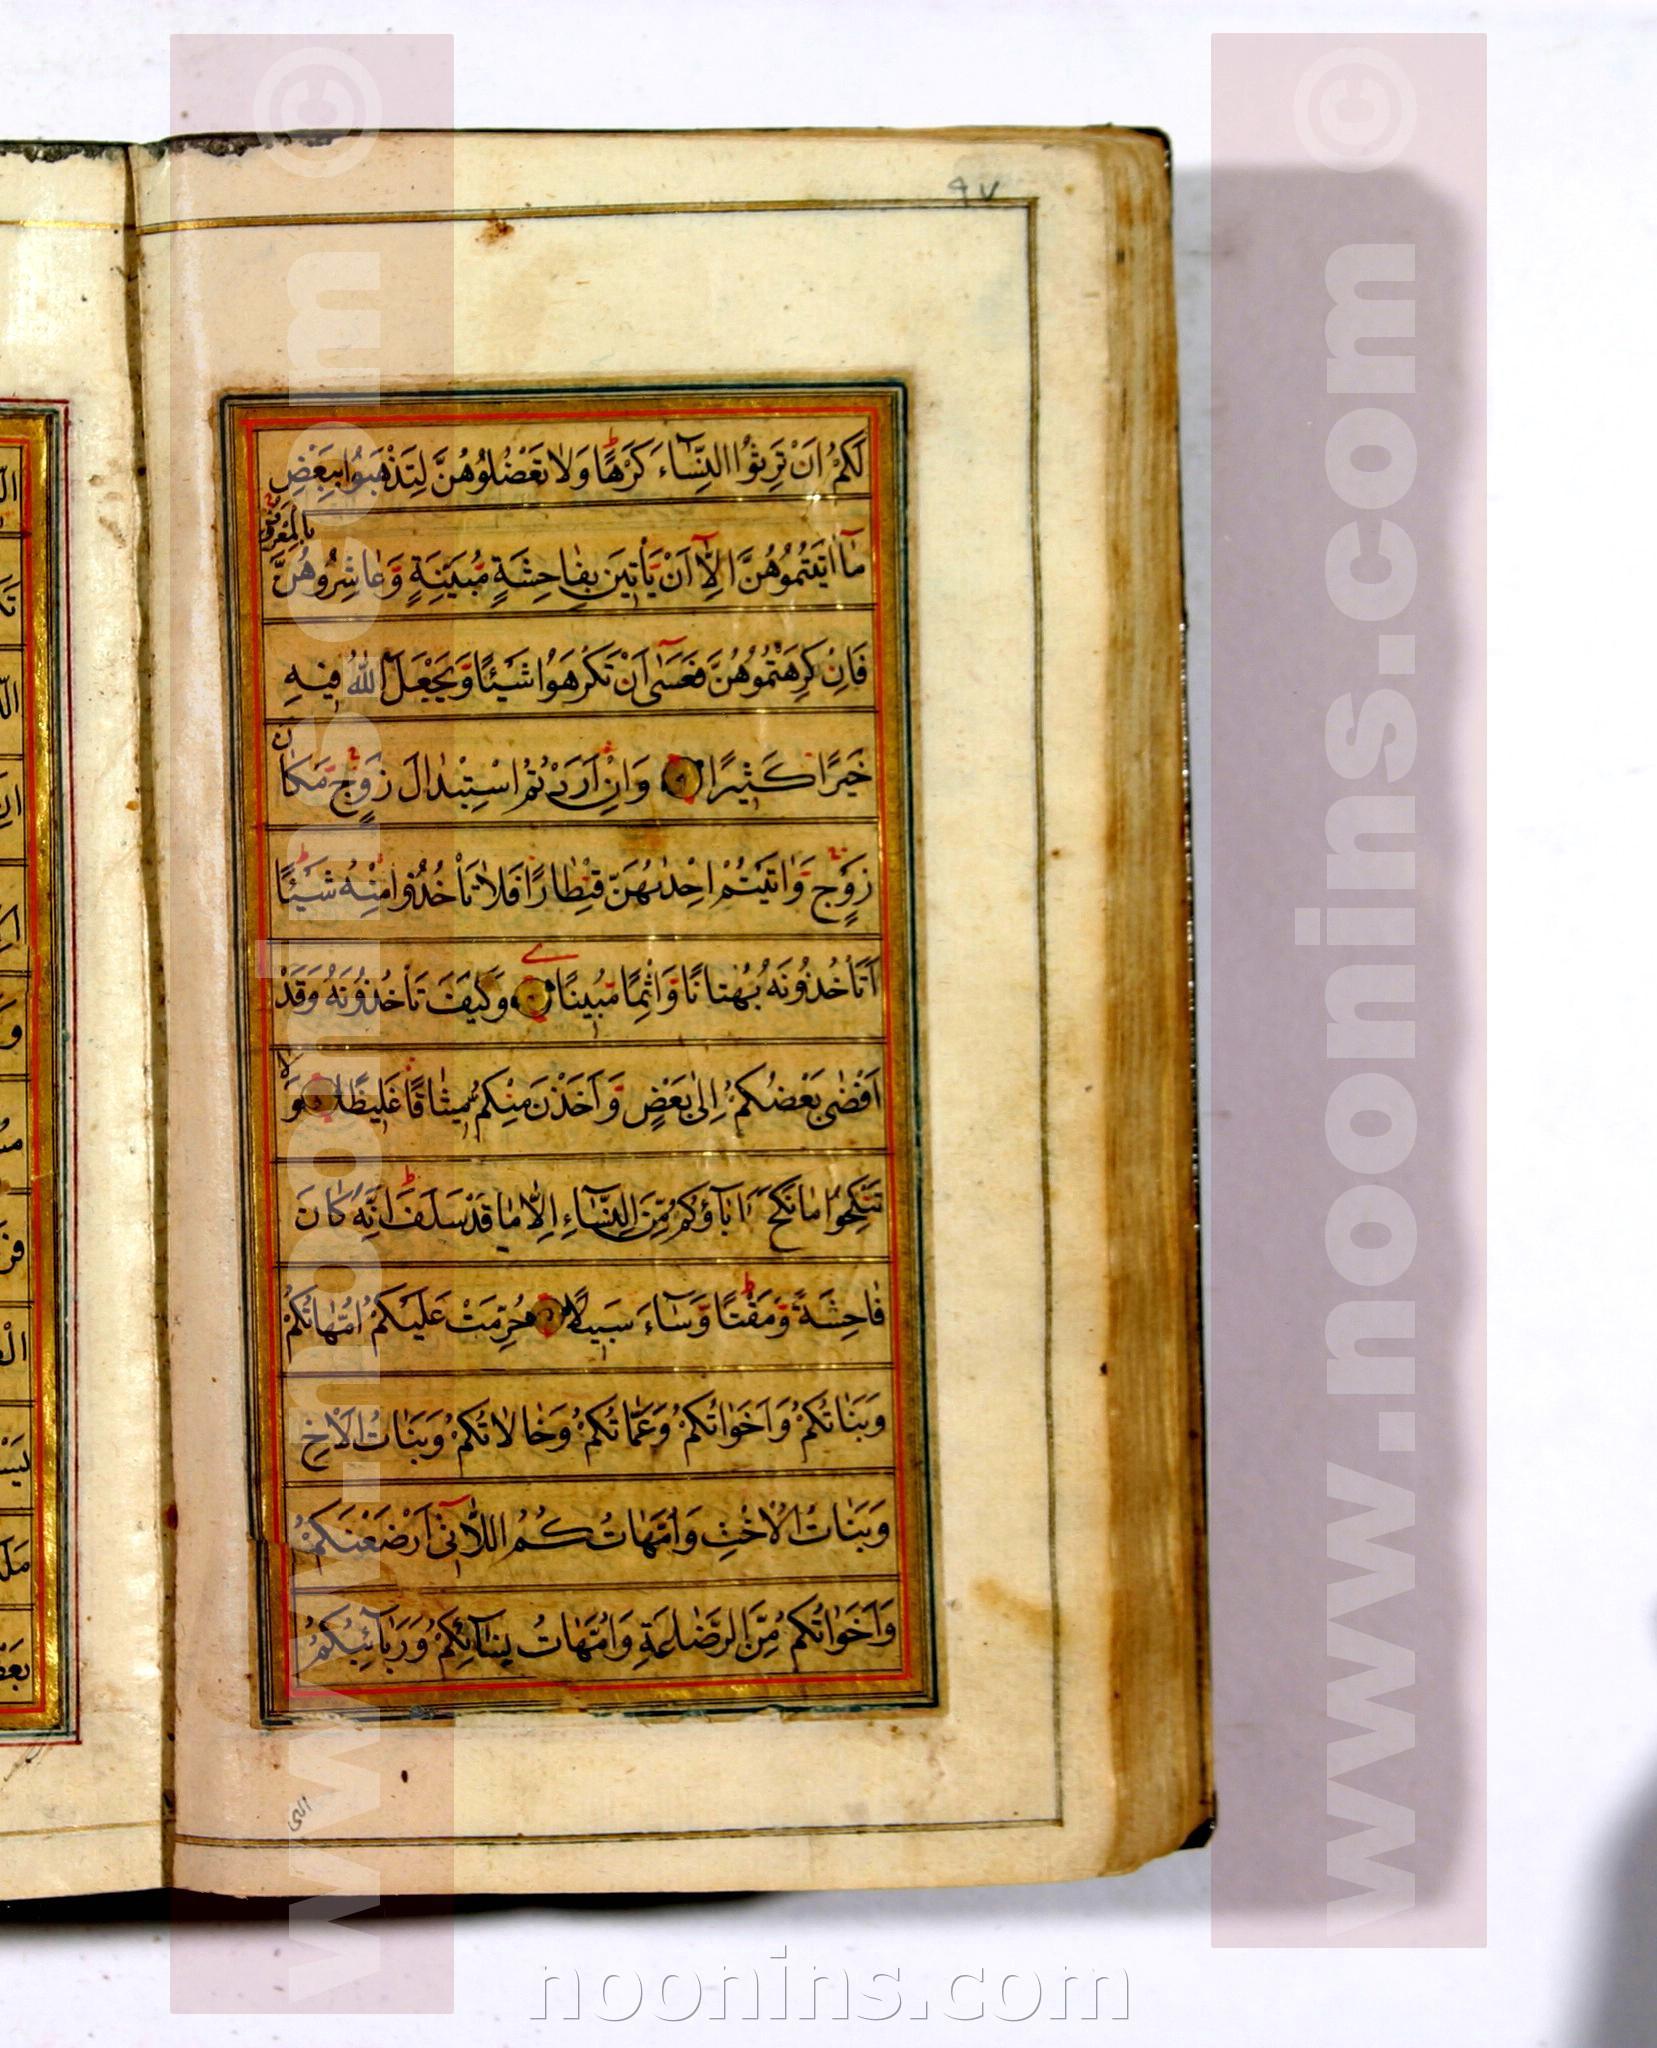 ٩٧
لَكُمْ اَنْ تَرِثُوا النِّسَآءَ كَرْهًا وَلَا تَعْضُلُوهُنَّ لِتَذْهَبُوا بِبَعْضِ
مَآ اٰتَيْتُمُوهُنَّ اِلَّآ اَنْ يَأْتِينَ بِفَاحِشَةٍ مُبَيِّنَةٍ وَعَاشِرُوهُنَّ بِالْمَعْرُوفِ
فَاِنْ كَرِهْتُمُوهُنَّ فَعَسٰٓى اَنْ تَكْرَهُوا شَيْئًا وَيَجْعَلَ اللّٰهُ فِيهِ
خَيْرًا كَثِيرًا وَاِنْ اَرَدْتُمُ اسْتِبْدَالَ زَوْجٍ مَكَانَ
زَوْجٍ وَاٰتَيْتُمْ اِحْدٰىهُنَّ قِنْطَارًا فَلَا تَأْخُذُوا مِنْهُ شَيْئًا
اَتَأْخُذُونَهُ بُهْتَانًا وَاِثْمًا مُبِينًا وَكَيْفَ تَأْخُذُونَهُ وَقَدْ
اَفْضٰى بَعْضُكُمْ اِلٰى بَعْضٍ وَاَخَذْنَ مِنْكُمْ مِيثَاقًا غَلِيظًا وَلَا
تَنْكِحُوا مَا نَكَحَ اٰبَآؤُكُمْ مِنَ النِّسَآءِ اِلَّا مَا قَدْ سَلَفَ اِنَّهُ كَانَ
فَاحِشَةً وَمَقْتًا وَسَآءَ سَبِيلًا حُرِّمَتْ عَلَيْكُمْ اُمَّهَاتُكُمْ
وَبَنَاتُكُمْ وَاَخَوَاتُكُمْ وَعَمَّاتُكُمْ وَخَالَاتُكُمْ وَبَنَاتُ الْاَخِ
وَبَنَاتُ الْاُخْتِ وَاُمَّهَاتُكُمُ اللَّاتِٓى اَرْضَعْنَكُمْ
وَاَخَوَاتُكُمْ مِنَ الرَّضَاعَةِ وَاُمَّهَاتُ نِسَآئِكُمْ وَرَبَآئِبُكُمُ
اللاتى
www.noonins.com ©
www.noonins.com ©
noonins.com